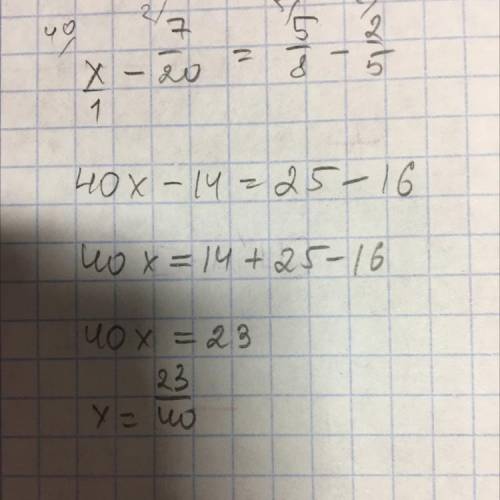 40/ 2/ 5/
x/1 - 7/20 = 5/8 - 2/5
40x - 14 = 25 - 16
40x = 14 + 25 - 16
40x = 23
x = 23/40